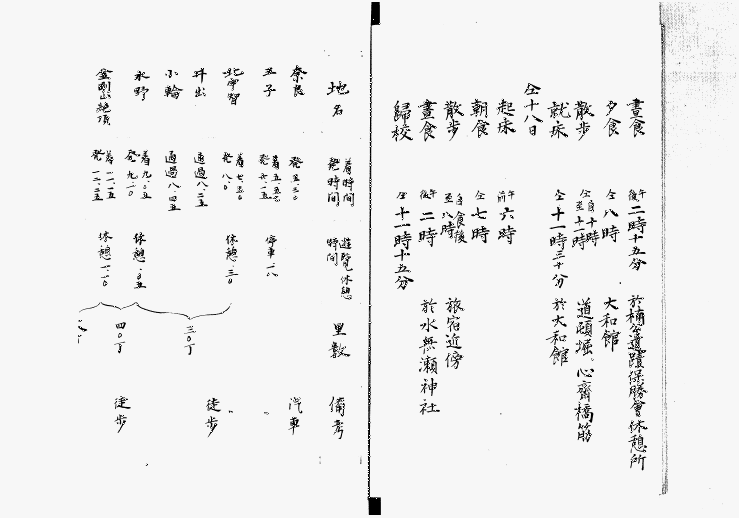 晝食 午後二時十五分 於楠公遺蹟保勝會休憩所
夕食 仝八時 大和館
散歩 仝自十時至十一時 道頓堀、心齋橋筋
就床 仝十一時三十分 於大和館
仝十八日
起床 午前六時
朝食 仝七時
散歩 自食後至八時 旅宿近傍
晝食 午後二時 於水無瀬神社
歸校 仝十一時十五分
地名 着時間発時間 遊覽休憩時間 里數 備考
奈良 発五、三〇 汽車
五子 着五、五七 発六、一五 停車、一八 〃
北宇智 着七、五〇 発八、〇 休憩、三〇 〃
井出 通過八、二五 三〇丁 徒歩
小輪 通過八、四五
永野 着九、〇五 発九、一〇 休憩、〇五
金剛山絶頂 着一一、一五 発一二、二五 休憩一、一〇 四〇丁 徒歩